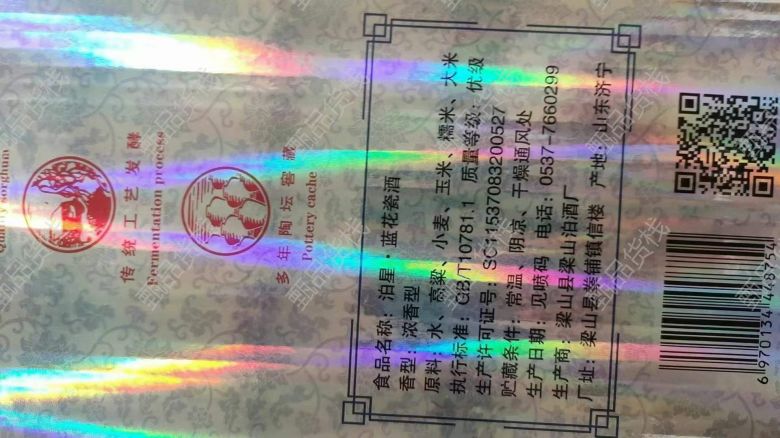 Quality sorghum
传统工艺发酵
Fermentation process
多年陶坛窖藏
Pottery cache
食品名称：泊星·蓝花瓷酒
香型：浓香型
原料：水、高粱、小麦、玉米、糯米、大米
执行标准：GB/T10781.1 质量等级：优级
生产许可证号：SC11537083200527
贮藏条件：常温、阴凉、干燥通风处
生产日期：见喷码 电话：0537-7660299
生产商：梁山县梁山泊酒厂
厂址：梁山县拳铺镇信楼 产地：山东济宁
6970134448754